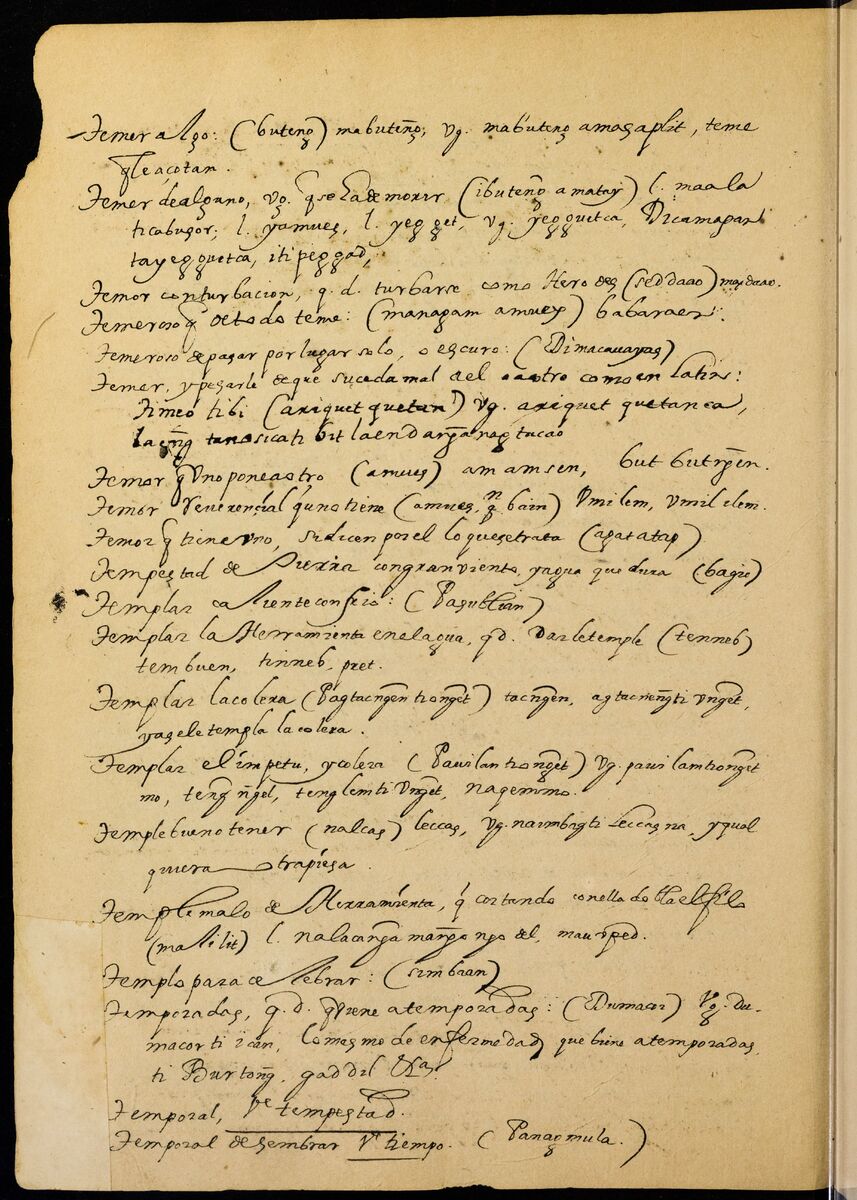 Temer algo: (buteng) mabuteng, vg. mabuteng amasaplit, teme
q̃le açotan.
Temer de alguno, vg. q̃ se ha de morir (ibuteng amatay) l. maala
ticabusor; l. yamues, l. yegget, vg. yegguetca, Dicamapan
tayegguetca, iti peggad,
Temor conturbacion, q. d. turbarse como Herodes (seddaao) masdaao.
Temeroso q̃ de todo teme: (managam amuex) babaraen.
Temeroso de pasar por lugar solo, o escuro: (Dimacauayas)
Temer, y pesarle de que suceda mal del otro como en Latin:
Timeo tibi (ariquet quetan) vg. ariquet quetanca,
Temor q̃ Uno pone a otro (amues) amamsen, but butngen.
Temor Reverencial q̃ uno tiene (amues, bain) Umilem, Umililem.
Temor q̃ tiene uno, si dicen por el lo que se trata (agatatap)
Tempestad de Sierra con gran viento, y agua que dura (bagio)
Templar caliente con frio: (Pagublian)
Templar la Herramienta en el agua, q. d. Darle temple (tenneb)
tembuen, tinneb, pret.
Templar la colera (Pagtacngen tionget) tacngen, agtacnengti Unget,
ya se le templa la colera.
Templar el impetu, y colera (Pauilan tionget) vg. pauilamtionget
mo, teng ngel, tenglemti Unget, nagemmo.
Temple bueno tener (nalcas) leccas, vg. naimbagti leccasna, y qual
quiera trapiesa.
Temple malo de Herramienta, q̃ cortando con ella dobla el filo
(malilit) l. nalaca
Templo para celebrar: (simbaan)
Temporadas, q. d. q̃ Viene a temporadas: (Dumacor) Vg. Du-
macorti ican, lo mesmo de enfermedad, que bino a temporadas,
ti Burtong, gaddil &a.
Temporal, Ve tempestad.
Temporal de sembrar Ve tiempo. (Panagmula.)